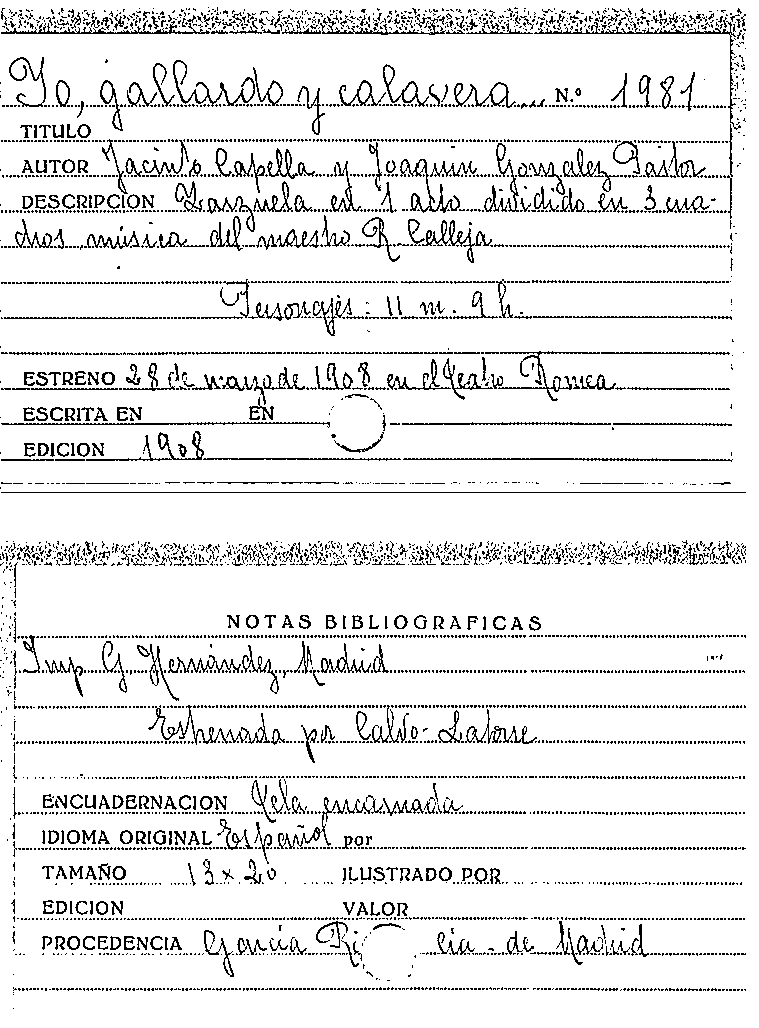 Yo, gallardo y calavera... N.º 1981
TITULO
AUTOR Jacinto Capella y Joaquin Gonzalez Pastor
DESCRIPCION Zarzuela en 1 acto dividido en 3 cua-
dros, música del maestro R. Calleja
Personajes: 11 m. 9 h.
ESTRENO 28 de marzo de 1908 en el Teatro Romea
ESCRITA EN EN
EDICION 1908
NOTAS BIBLIOGRAFICAS
Imp G. Hernández, Madrid
Estrenada por Calvo-Latorre
ENCUADERNACION Tela encarnada
IDIOMA ORIGINAL Español por
TAMAÑO 13 x 20 ILUSTRADO POR
EDICION VALOR
PROCEDENCIA García Ri cia - de Madrid